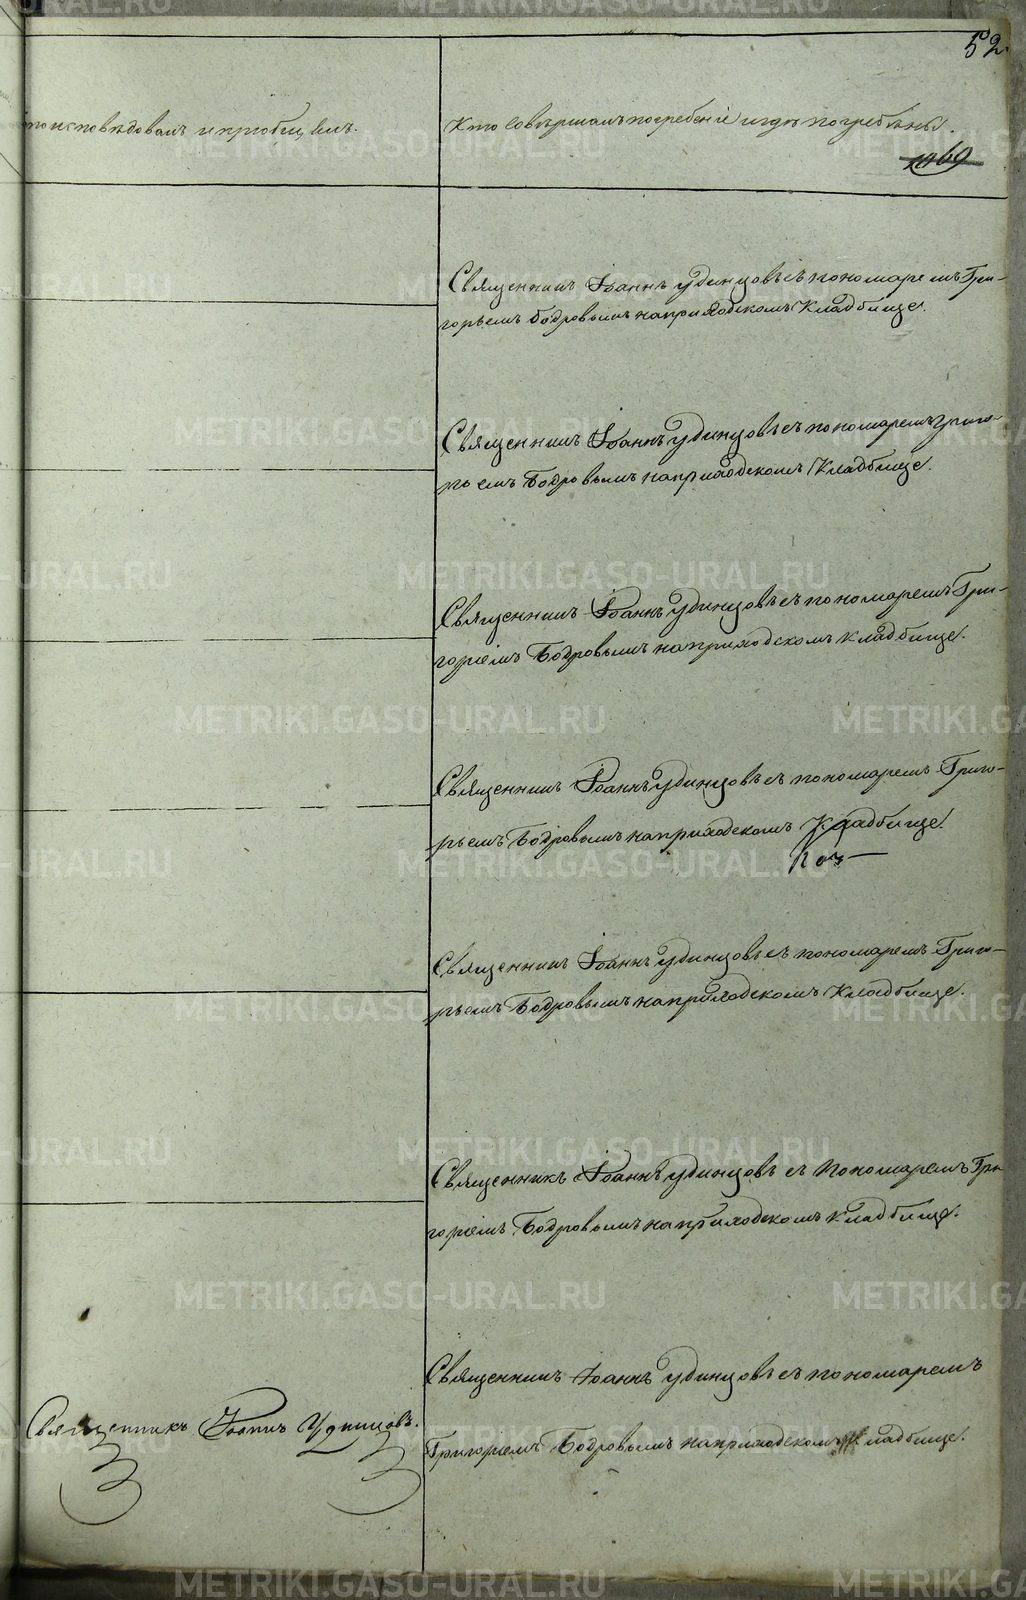 52.
то исповѣдовалъ и пріобщилъ.
Кто Совершалъ погребеніе и гдѣ погребены.
1069
Священникъ Іоаннъ Удинцовъ съ пономаремъ Гри-
горьемъ Бодровымъ на приходскомъ Кладбище.
Священникъ Іоаннъ Удинцовъ съ пономаремъ Григо-
рьемъ Бодровымъ на приходскомъ Кладбище.
Священникъ Іоаннъ Удинцовъ съ пономаремъ Гри-
горіемъ Бодровымъ на приходскомъ кладбище.
Священникъ Іоаннъ Удинцовъ съ пономаремъ Григо-
рьемъ Бодровымъ на приходскомъ Кладбище.
Священникъ Іоаннъ Удинцовъ съ пономаремъ Григо-
рьемъ Бодровымъ на приходскомъ Кладбище.
Священникъ Іоаннъ Удинцовъ съ Пономаремъ Гри-
горіемъ Бодровымъ на приходскомъ кладбище.
Священникъ Іоаннъ Удинцовъ съ пономаремъ
Григоріемъ Бодровымъ на приходскомъ Кладбище.
Священникъ Іоаннъ Удинцовъ.
METRIKI.GASO-URAL.RU